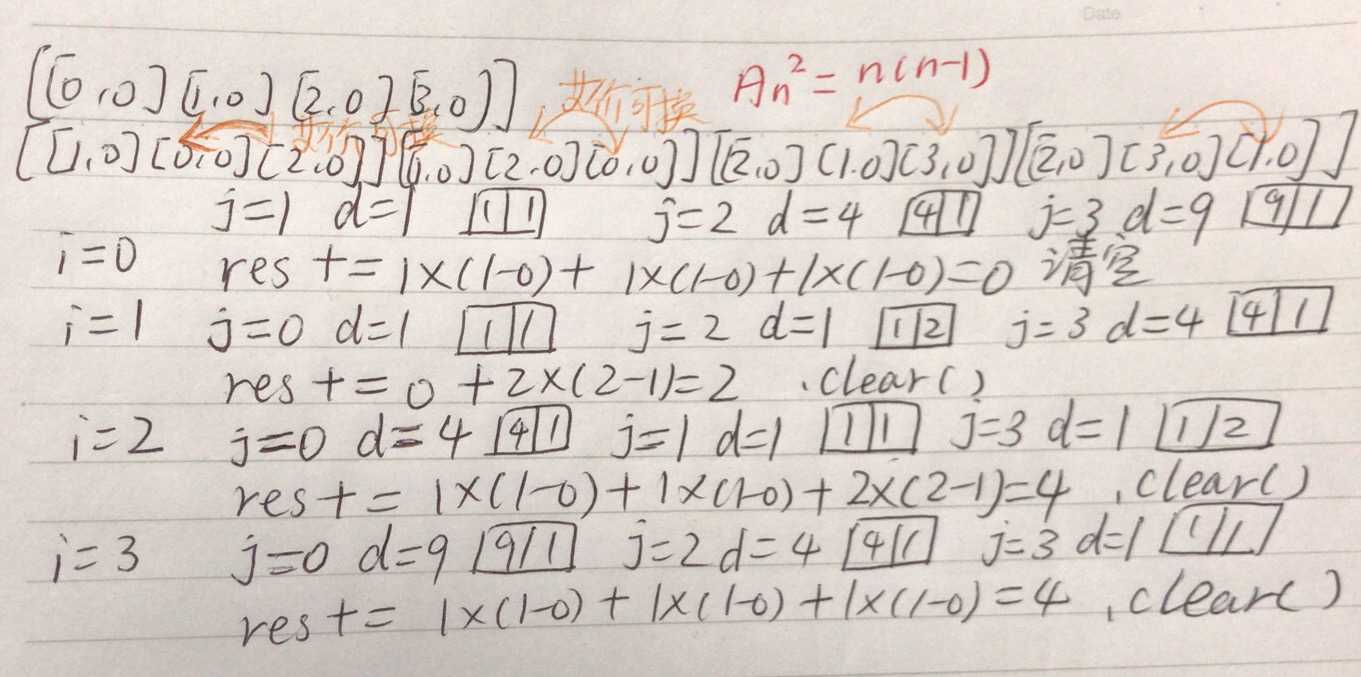 Date
[[0,0] [1,0] [2,0] [3,0]] 等价可换 Aₙ² = n(n-1)
等价可换
[[1,0] [0,0] [2,0]] [[1,0] [2,0] [0,0]] [[2,0] [1.0] [3,0]] [[2,0] [3,0] [1.0]]
j=1 d=1 1|1 j=2 d=4 4|1 j=3 d=9 9|1
i=0 res += 1×(1-0)+ 1×(1-0)+1×(1-0)=0 清空
i=1 j=0 d=1 1|1 j=2 d=1 1|2 j=3 d=4 4|1
res += 0 +2×(2-1)=2 .clear()
i=2 j=0 d=4 4|1 j=1 d=1 1|1 j=3 d=1 1|2
res += 1×(1-0)+1×(1-0)+2×(2-1)=4 .clear()
i=3 j=0 d=9 9|1 j=2 d=4 4|1 j=3 d=1 1|1
res += 1×(1-0) + 1×(1-0) +1×(1-0)=4 .clear()